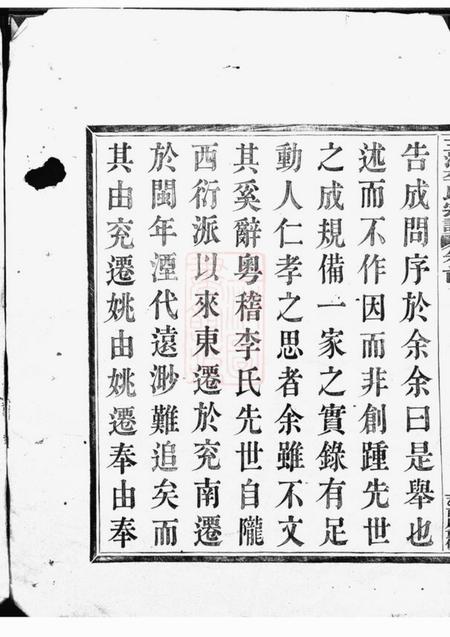 告成問序於余余曰是舉也
述而不作因而非創踵先世
之成規備一家之實錄有足
動人仁孝之思者余雖不文
其奚辭粵稽李氏先世自隴
西衍派以來東遷於兖南遷
於閩年湮代遠渺難追矣而
其由兖遷姚由姚遷奉由奉